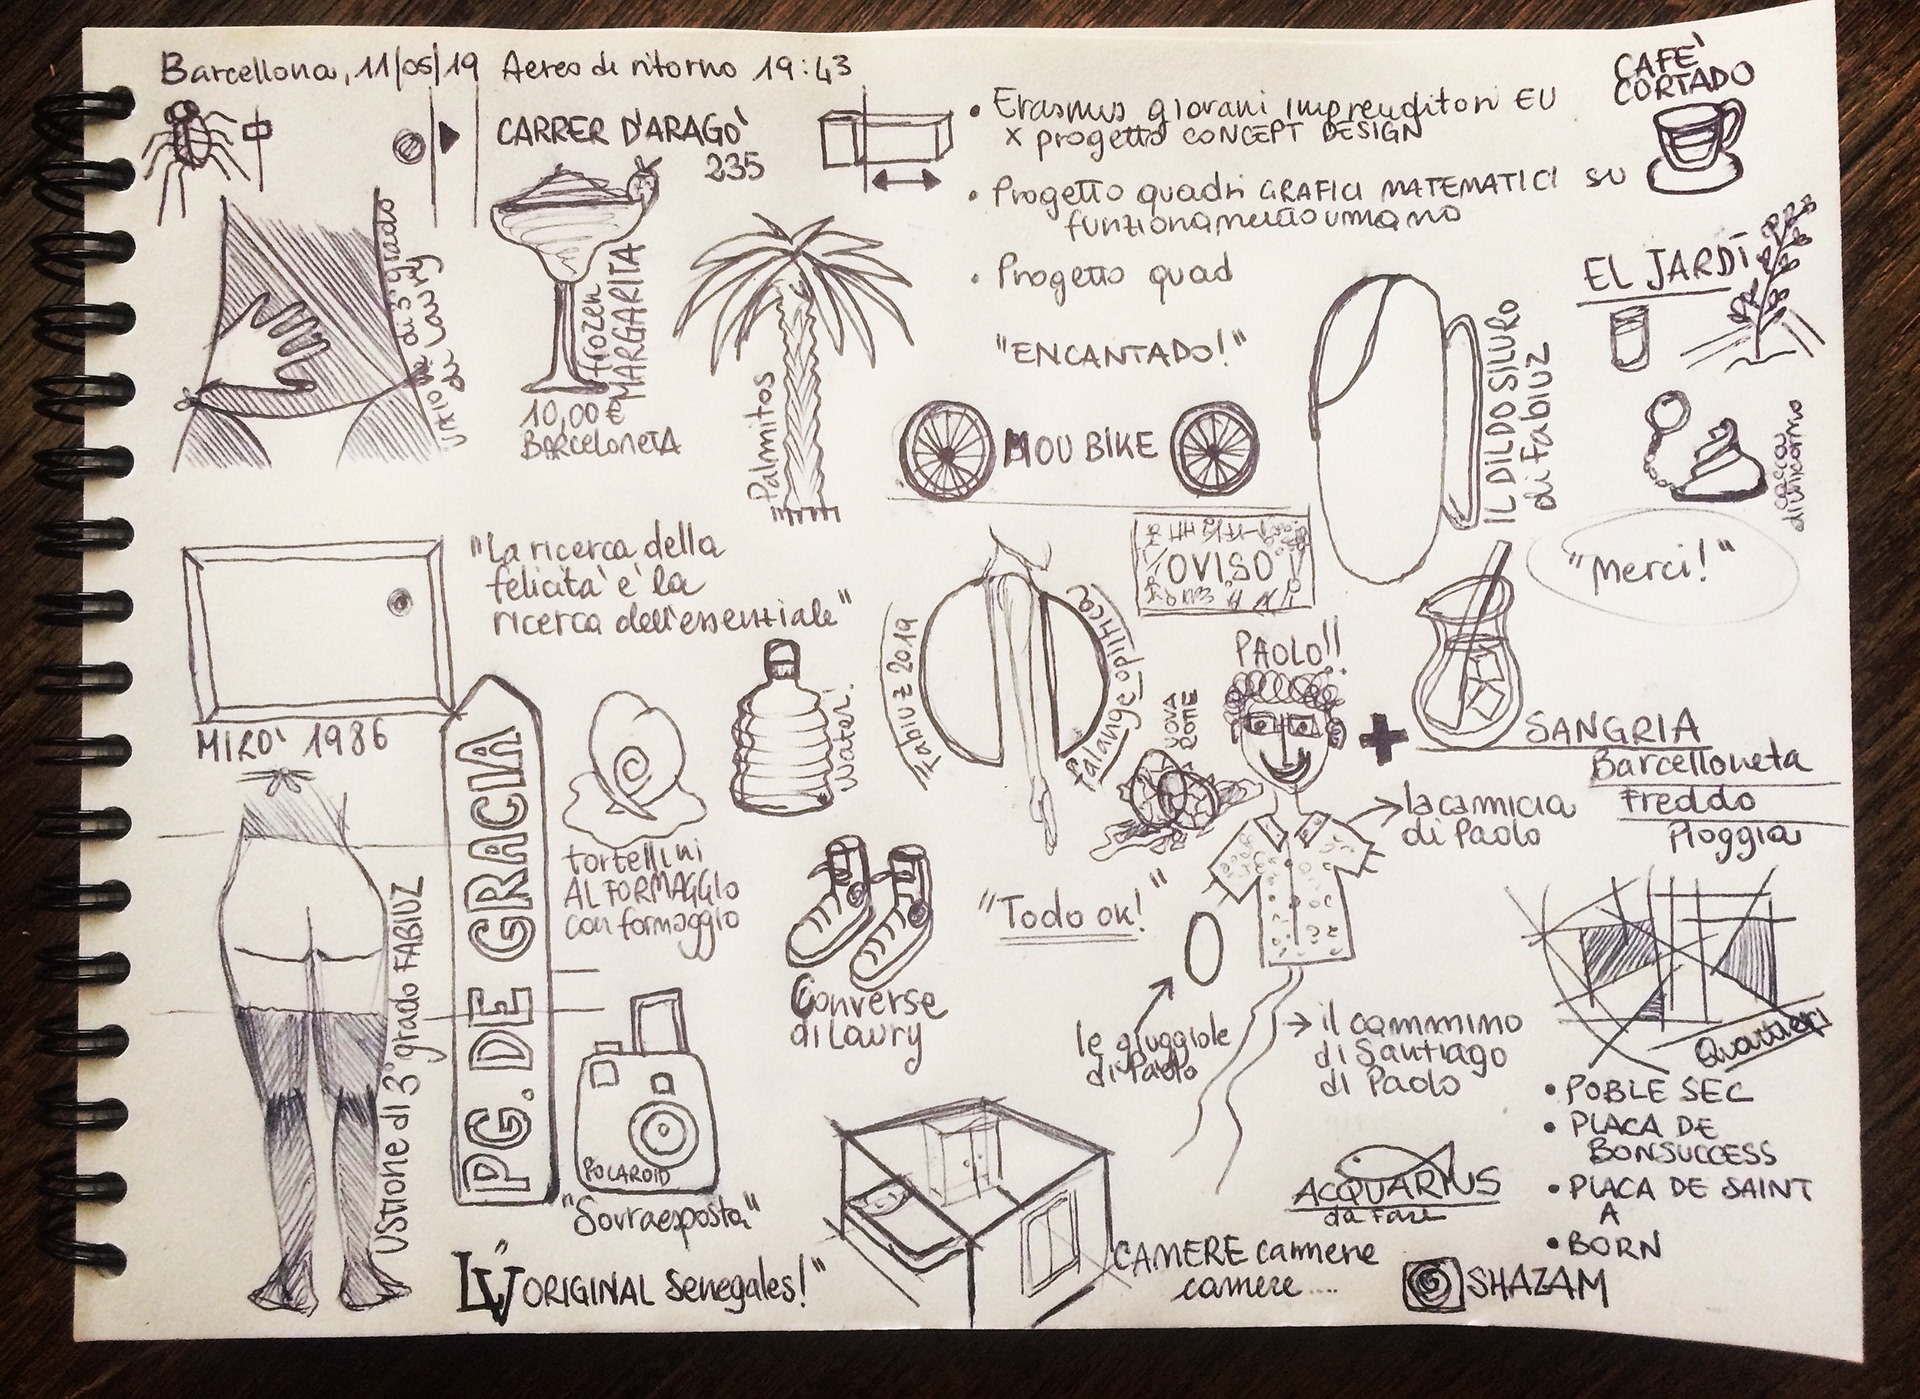 Barcellona, 11/05/19 Aereo di ritorno 19:43
CARRER D'ARAGO'
235
• Erasmus giovani imprenditori EU
x progetto CONCEPT DESIGN
• Progetto quadri GRAFICI MATEMATICI SU
funzionamento umano
• Progetto quad
CAFE'
CORTADO
di 3° grado
di Laury
frozen
MARGARITA
10,00 €
BARCELONETA
Palmitos
"ENCANTADO!"
MOU BIKE
IL DILDO SILURO
di Fabiuz
EL JARDI
cacca
di unicorno
"Merci!"
"La ricerca della
felicità è la
ricerca dell'essenziale"
MIRO' 1986
OVISO
Fabiuz 2019
falange opilinca
PAOLO!!
UOVA
ROTTE
SANGRIA
Barcelloneta
Freddo
Pioggia
Water!
PG. DE GRACIA
tortellini
AL FORMAGGIO
con formaggio
la camicia
di Paolo
"Todo ok!"
Converse
di Laury
USTIONE di 3° grado FABIUZ
le giuggiole
di Paolo
il cammino
di Santiago
di Paolo
Quartieri
• POBLE SEC
• PLACA DE
BONSUCCESS
• PLACA DE SAINT
A
• BORN
POLAROID
"Sovraesposta"
ACQUARIUS
da fare
LV "ORIGINAL Senegales!"
CAMERE camere
camere....
SHAZAM